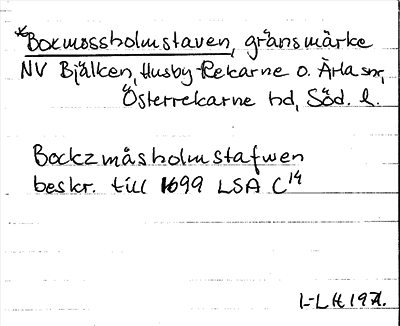 *Boxmossholmstaven, gränsmärke
NV Bjälken, Husby-Rekarne o. Ärla snr,
Österrekarne hd, Söd. l.
Bockzmåsholmstafwen
beskr. till 1699 LSA C14
1971.